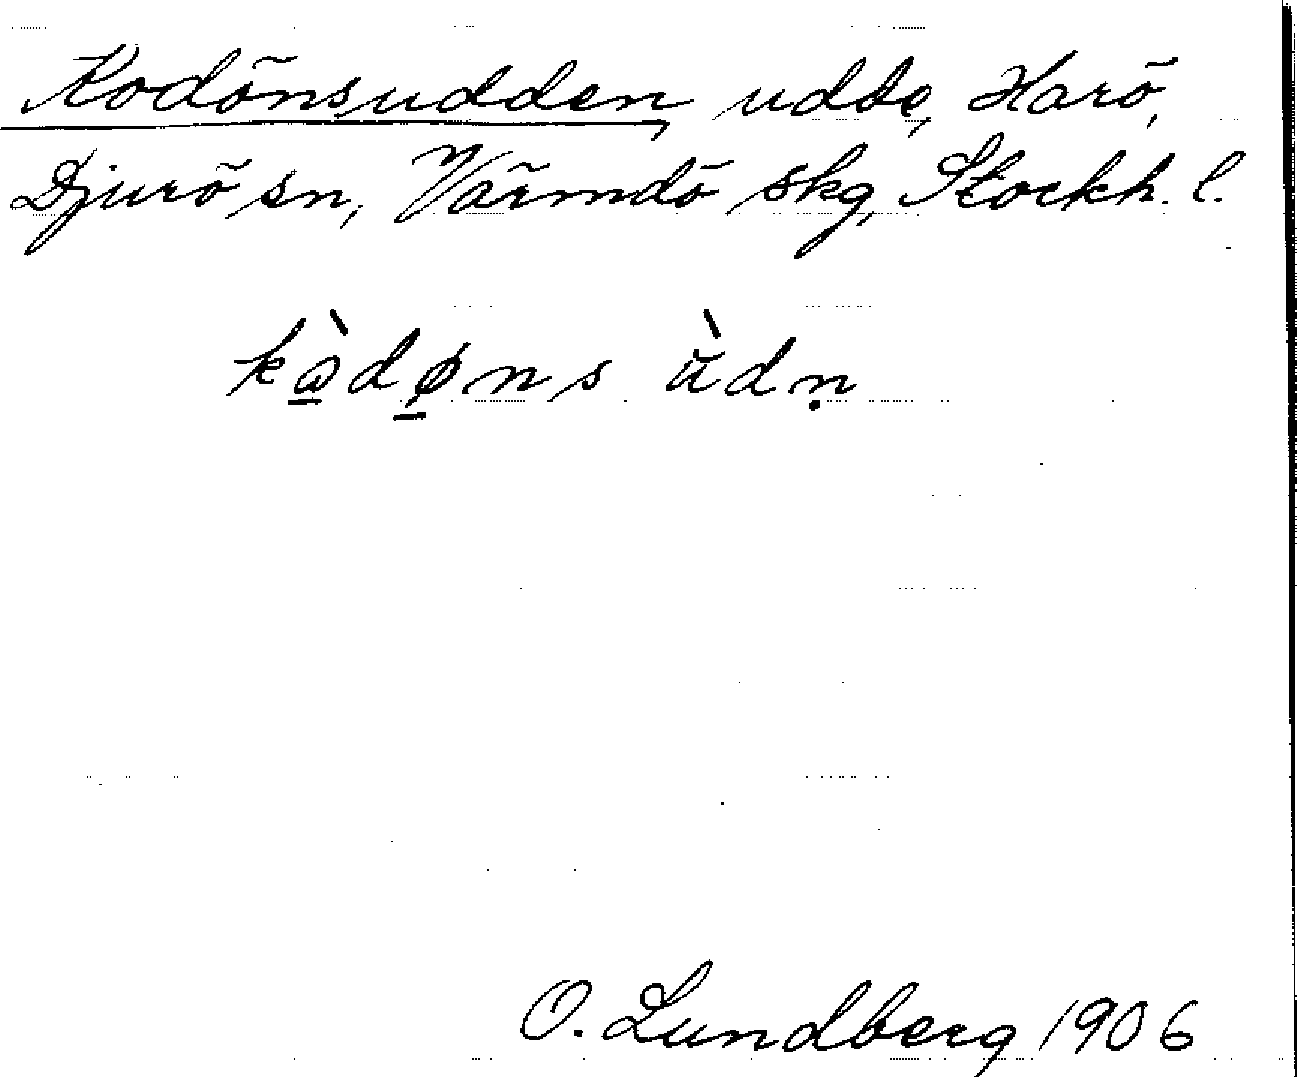 Kodönsudden, udde, Harö,
Djurö sn, Värmdö skg, Stockh. l.
kò̱dø̱ns ùdṇ
O. Lundberg 1906